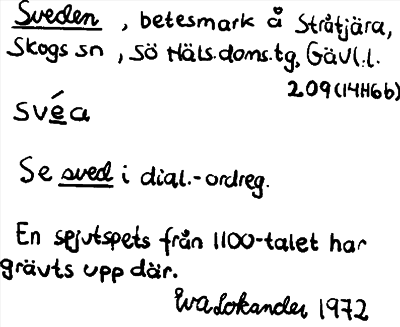 Sveden, betesmark å Stråtjära,
Skogs sn, Sö Häls.doms.tg, Gävl.l.
209(14H6b)
svéa
Se sved i dial.-ordreg.
En spjutspets från 1100-talet har
grävts upp där.
Eva Lokander 1972